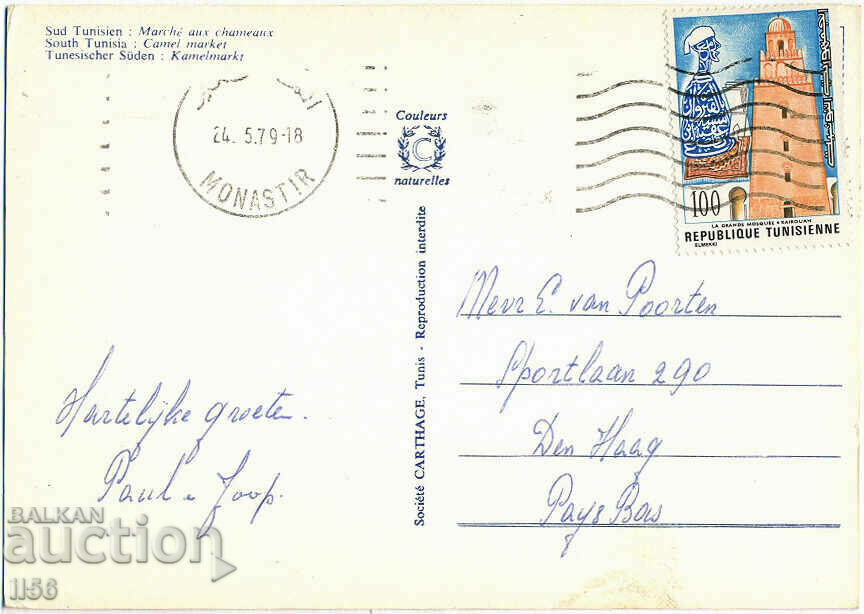 Sud Tunisien : Marché aux chameaux
South Tunisia : Camel market
Tunesischer Süden : Kamelmarkt
24. 5.79-18
MONASTIR
Couleurs
C
naturelles
100
LA GRANDE MOSQUÉE KAIROUAN
REPUBLIQUE TUNISIENNE
ELMEKKI
الجمهورية التونسية
Société CARTHAGE, Tunis - Reproduction interdite
Mevr E. van Poorten
Sportlaan 290
Den Haag
Pays Bas
Hartelijke groeten.
Paul + Joop.
BALKAN
auction
1156